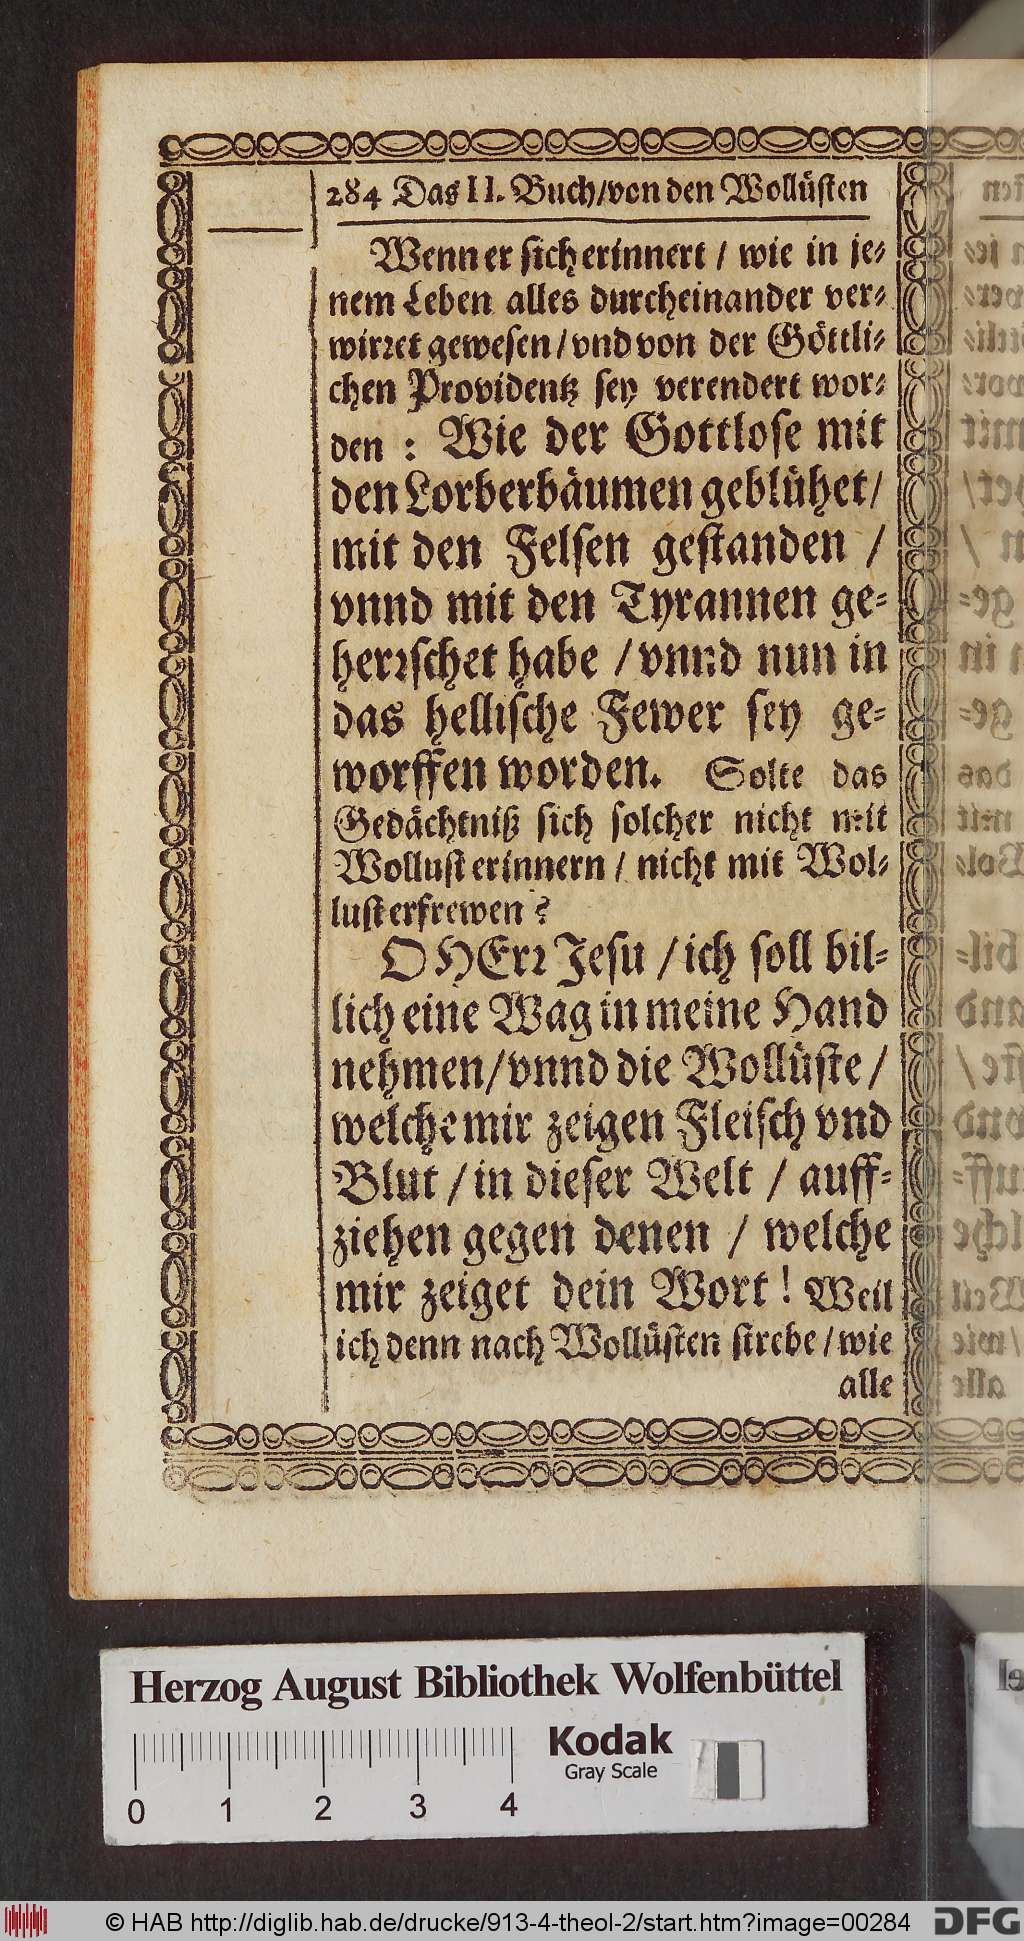 284 Das II. Buch/von den Wollüsten
Wenn er sich erinnert / wie in je-
nem Leben alles durcheinander ver-
wirret gewesen / vnd von der Göttli-
chen Providentz sey verendert wor-
den : Wie der Gottlose mit
den Lorberbäumen geblühet/
mit den Felsen gestanden /
vnnd mit den Tyrannen ge-
herrschet habe / vnnd nun in
das hellische Fewer sey ge-
worffen worden. Solte das
Gedächtniß sich solcher nicht mit
Wollust erinnern / nicht mit Wol-
lust erfrewen ?
O HErr Jesu / ich soll bil-
lich eine Wag in meine Hand
nehmen/vnnd die Wollüste /
welche mir zeigen Fleisch vnd
Blut / in dieser Welt / auff-
ziehen gegen denen / welche
mir zeiget dein Wort ! Weil
ich denn nach Wollüsten strebe / wie
alle
Herzog August Bibliothek Wolfenbüttel
Kodak
Gray Scale
0 1 2 3 4
© HAB http://diglib.hab.de/drucke/913-4-theol-2/start.htm?image=00284
DFG